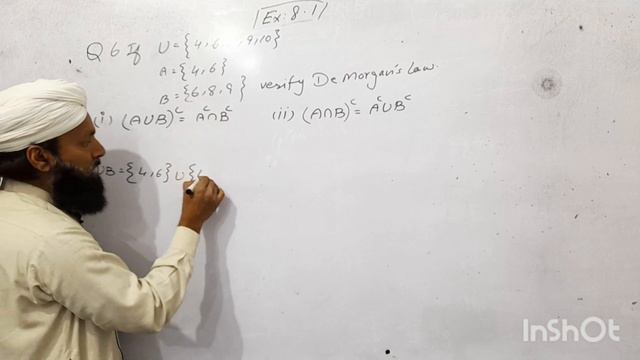 Ex: 8.1
Q 6 If U = {4, 6 , 9, 10}
A = {4, 6}
B = {6, 8, 9} verify De Morgan's Law.
(i) (A∪B)ᶜ = Aᶜ∩Bᶜ (ii) (A∩B)ᶜ = Aᶜ∪Bᶜ
∪B = {4, 6} ∪ {
InShOt